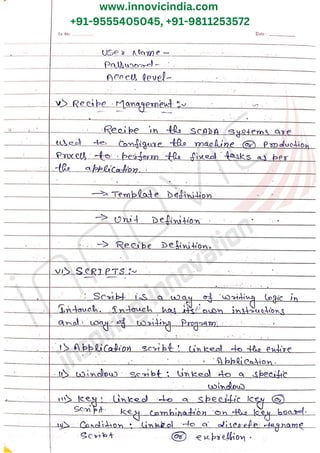 www.innovicindia.com
+91-9555405045, +91-9811253572
Date:
User Name -
Password -
Access level -
V> Recipe Management :-
Recipe in the SCADA systems are
used to configure the machine or Production
Process to perform the fixed tasks as per
the application.
→ Template Definition
→ Unit Definition
→ Recipe Definition.
VI> SCRIPTS :-
Script is a way of writing logic in
Intouch. Intouch has its own instructions
and way of writing Program.
I> Application script : linked to the entire
Application.
II> Window script : linked to a specific
window
III> Key : linked to a specific key or
Script key combination on the key board.
IV> Condition : linked to a discrete tagname
Script or expression.